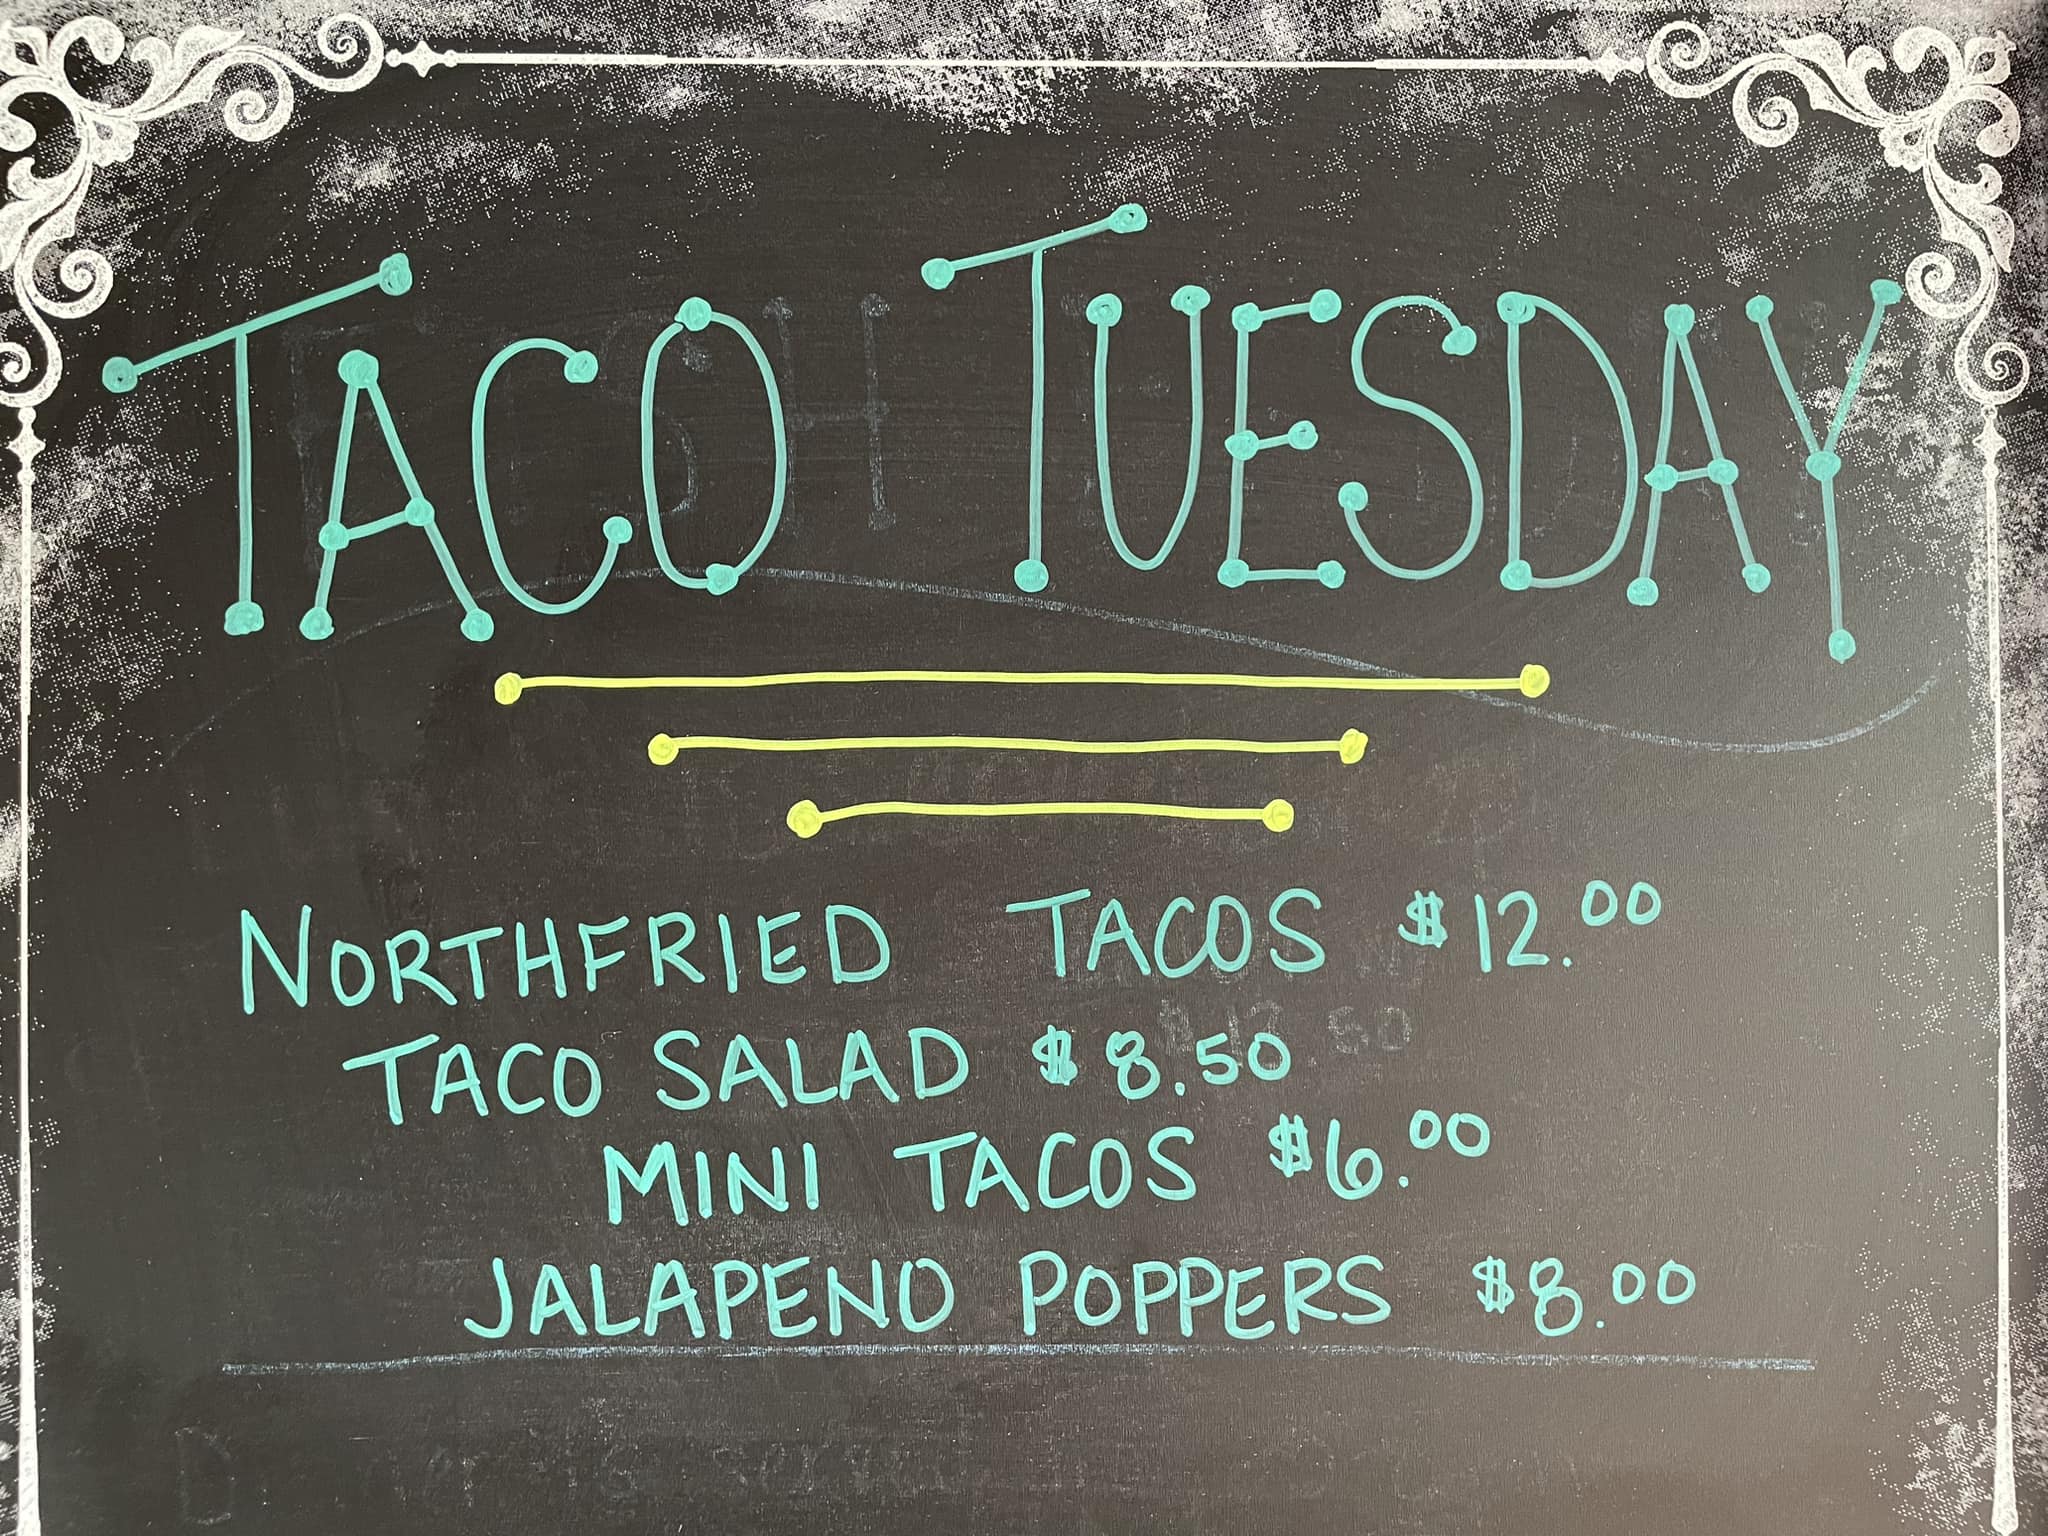 TACO TUESDAY
NORTHFRIED TACOS $12.00
TACO SALAD $8.50
MINI TACOS $6.00
JALAPENO POPPERS $8.00